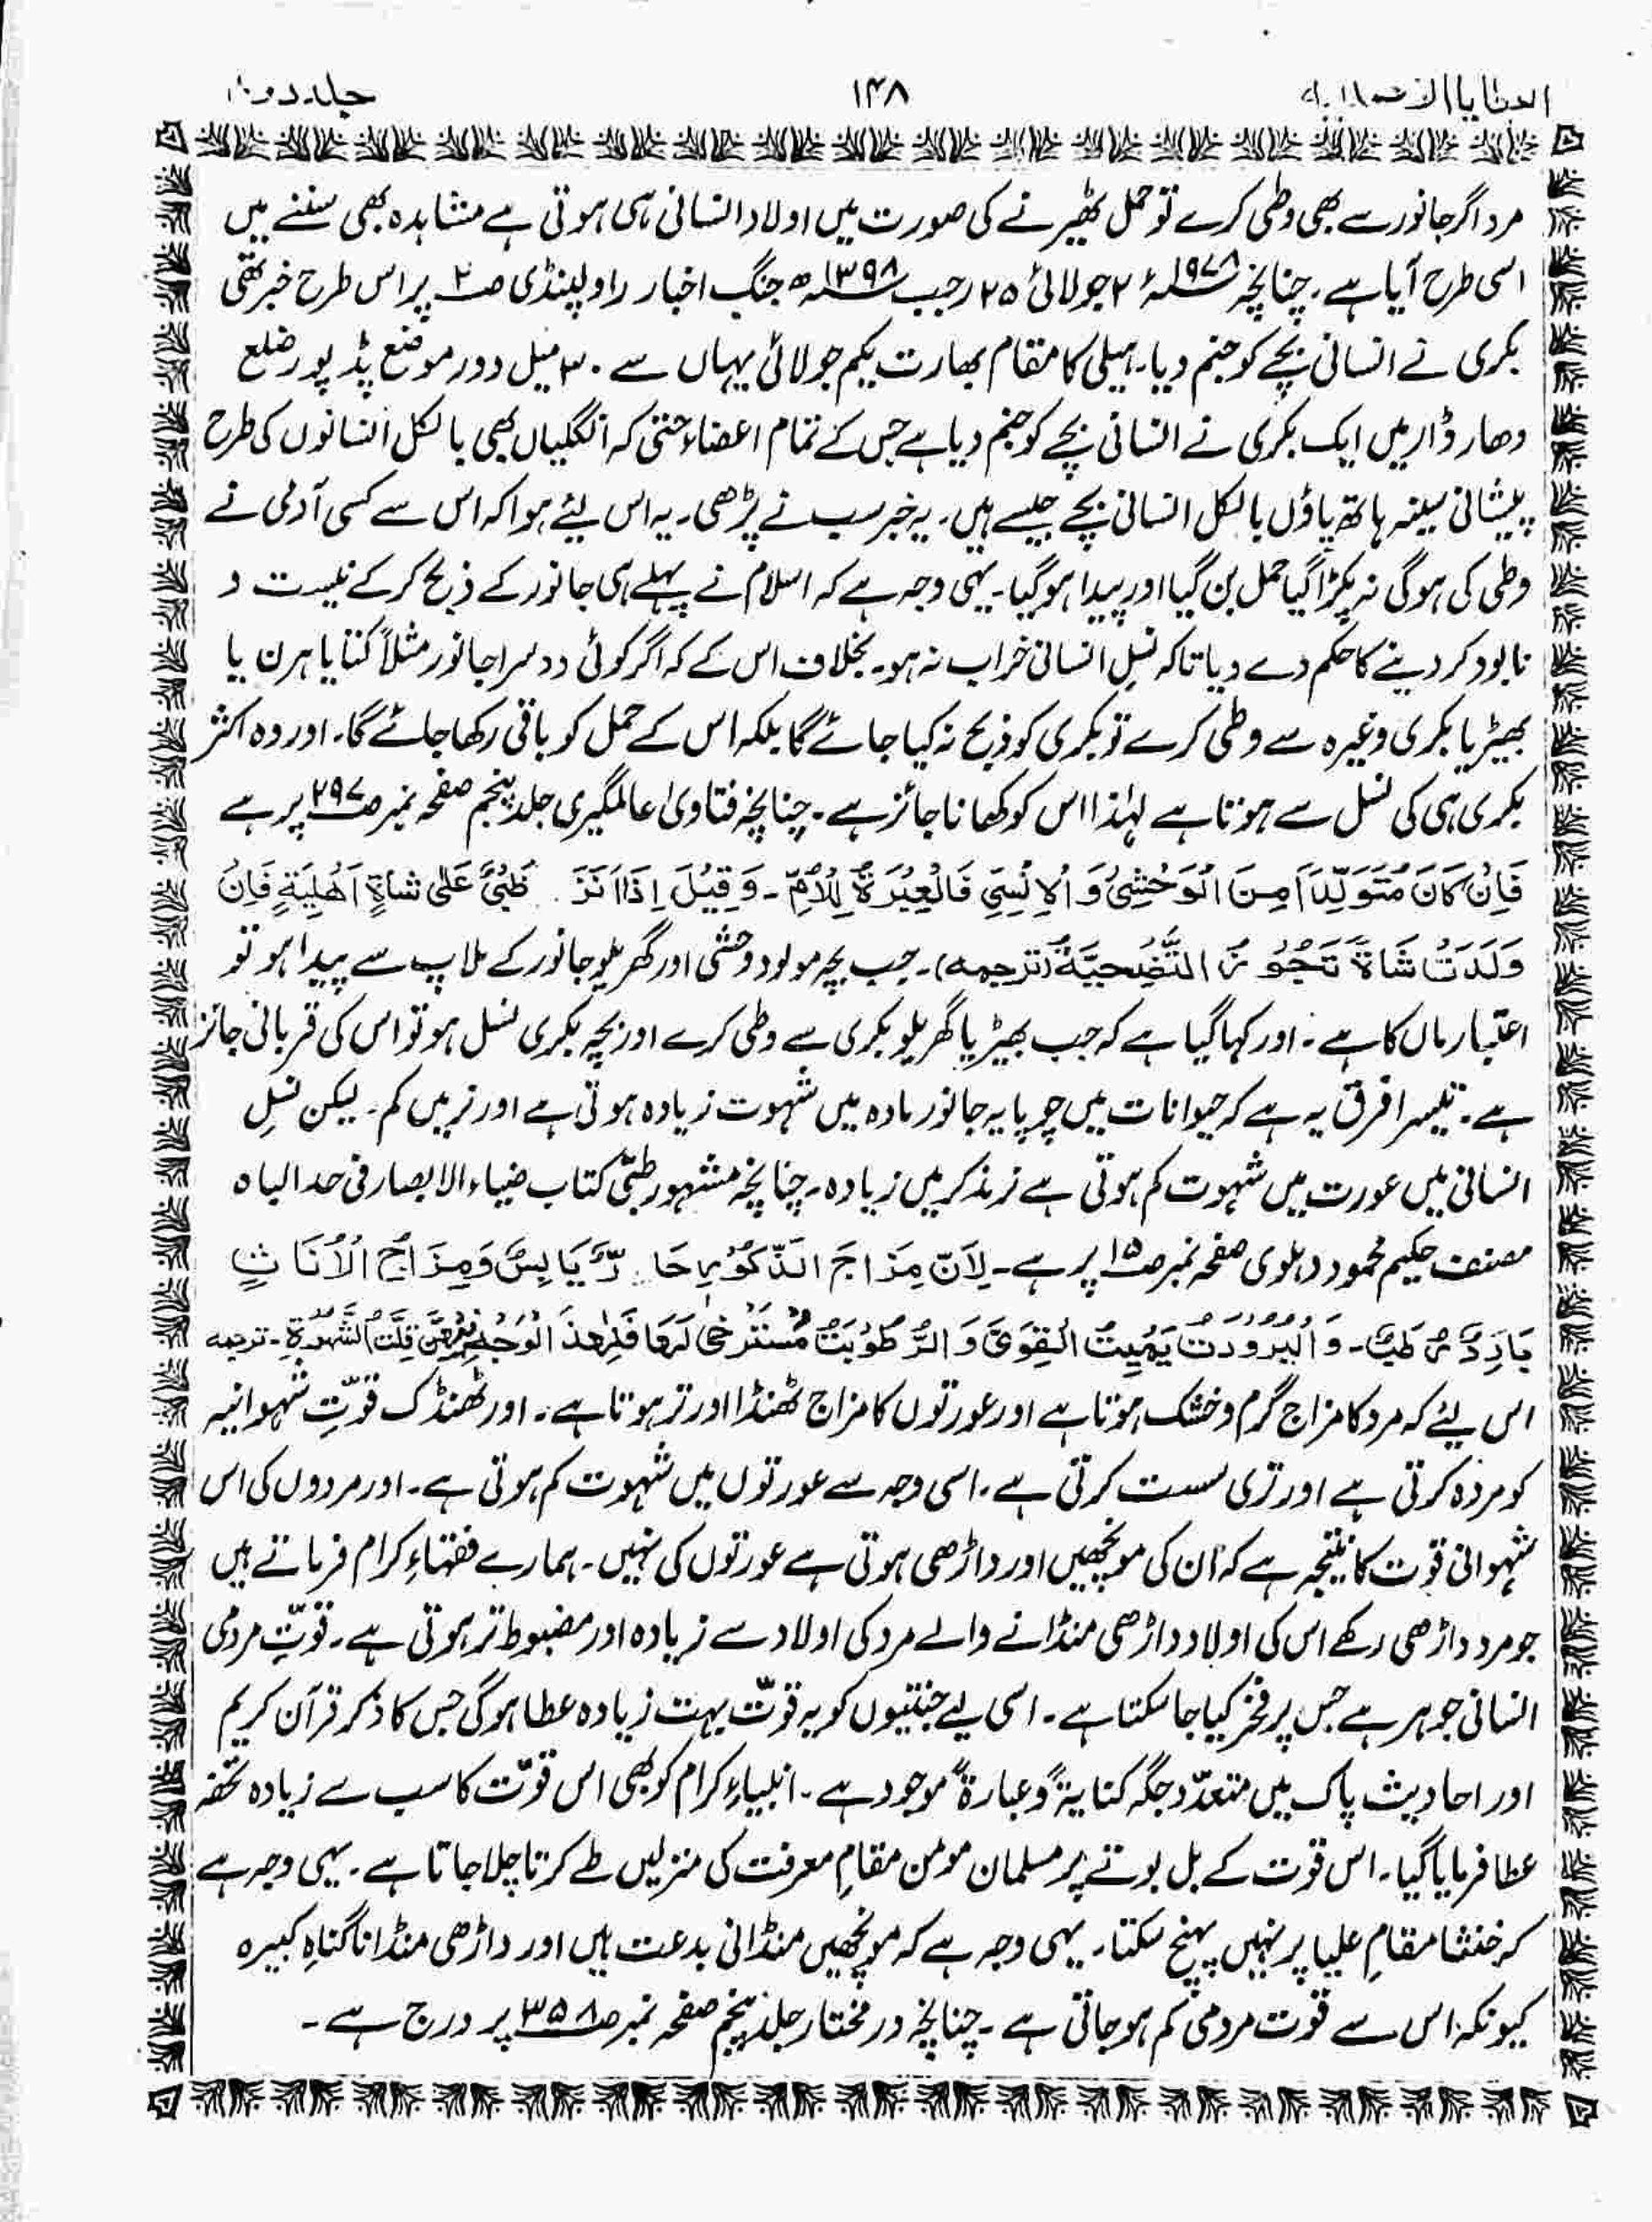 العطایا الاحمدیہ ۱۴۸ جلد دوم
مرد اگر جانور سے بھی وطی کرے تو حمل ٹھیرنے کی صورت میں اولاد انسانی ہی ہوتی ہے مشاہدہ بھی سننے میں
اسی طرح آیا ہے۔ چنانچہ ۱۹۷۸ء ۲ جولائی ۲۵ رجب ۱۳۹۸ھ جنگ اخبار راولپنڈی صـ۲ پر اس طرح خبر تھی
بکری نے انسانی بچے کو جنم دیا۔ ہبلی کا مقام بھارت یکم جولائی یہاں سے ۳۰ میل دور موضع پڈپور ضلع
دھارواڑ میں ایک بکری نے انسانی بچے کو جنم دیا ہے جس کے تمام اعضاء حتیٰ کہ انگلیاں بھی بالکل انسانوں کی طرح
پیشانی سینہ ہاتھ پاؤں بالکل انسانی بچے جیسے ہیں۔ یہ خبر سب نے پڑھی۔ یہ اس لیئے ہوا کہ اس سے کسی آدمی نے
وطی کی ہوگی نہ پکڑا گیا حمل بن گیا اور پیدا ہوگیا۔ یہی وجہ ہے کہ اسلام نے پہلے ہی جانور کے ذبح کرکے نیست و
نابود کر دینے کا حکم دے دیا تاکہ نسلِ انسانی خراب نہ ہو۔ بخلاف اس کے کہ اگر کوئی دوسرا جانور مثلاً کتا یا ہرن یا
بھیڑیا بکری وغیرہ سے وطی کرے تو بکری کو ذبح نہ کیا جائے گا بلکہ اس کے حمل کو باقی رکھا جائے گا۔ اور وہ اکثر
بکری ہی کی نسل سے ہوتا ہے لہٰذا اس کو کھانا جائز ہے۔ چنانچہ فتاویٰ عالمگیری جلد پنجم صفحہ نمبر صـ۲۹۷ پر ہے
فَاِنْ كَانَ مُتَوَلِّدًا مِنَ الْوَحْشِيْ وَ الْاِنْسِيِ فَالْعِبْرَةُ لِلْاُمِّ۔ وَقِيْلَ اِذَا نَزَ ظَبْيٌ عَلٰی شَاةٍ اَهْلِيَةٍ فَاِنْ
وَلَدَتْ شَاةً تَجُوْزُ التَّضْحِيَّةُ (ترجمہ)۔ جب بچہ مولود وحشی اور گھریلو جانور کے ملاپ سے پیدا ہو تو
اعتبار ماں کا ہے۔ اور کہا گیا ہے کہ جب بھیڑیا گھریلو بکری سے وطی کرے اور بچہ بکری نسل ہو تو اس کی قربانی جائز
ہے۔ تیسرا فرق یہ ہے کہ حیوانات میں چوپایہ جانور مادہ میں شہوت زیادہ ہوتی ہے اور نر میں کم۔ لیکن نسلِ
انسانی میں عورت میں شہوت کم ہوتی ہے نر مذکر میں زیادہ۔ چنانچہ مشہور طبّی کتاب ضیاء الابصار فی حد الباہ
مصنف حکیم محمود دہلوی صفحہ نمبر صـ۱۵ پر ہے۔ لِاَنَّ مِزَاجَ الذَّكُوْرِ حَارٌّ يَابِسٌ وَمِزَاجُ الْاُنَاثِ
بَارِدٌ رَطَبٌ۔ وَالْبُرُوْدَتُ يَمِيْتُ الْقِوٰی وَ الرُّطُوْبَتُ مُسْتَرْخِیْ لَهَا فَلِهٰذَ الْوَجْهِ قِلَّتُ الشَّهْوَةِ۔ ترجمہ
اس لیئے کہ مرد کا مزاج گرم و خشک ہوتا ہے اور عورتوں کا مزاج ٹھنڈا اور تر ہوتا ہے۔ اور ٹھنڈک قوّتِ شہوانیہ
کو مردہ کرتی ہے اور تری سست کرتی ہے۔ اسی وجہ سے عورتوں میں شہوت کم ہوتی ہے۔ اور مردوں کی اس
شہوانی قوت کا نتیجہ ہے کہ ان کی مونچھیں اور داڑھی ہوتی ہے عورتوں کی نہیں۔ ہمارے فقہاءِ کرام فرماتے ہیں
جو مرد داڑھی رکھے اس کی اولاد داڑھی منڈانے والے مرد کی اولاد سے زیادہ اور مضبوط تر ہوتی ہے۔ قوّتِ مردمی
انسانی جوہر ہے جس پر فخر کیا جاسکتا ہے۔ اسی لیے جنتیوں کو یہ قوّت بہت زیادہ عطا ہوگی جس کا ذکر قرآن کریم
اور احادیث پاک میں متعدّد جگہ کنایۃً وعبارۃً موجود ہے۔ انبیاءِ کرام کو بھی اس قوّت کا سب سے زیادہ تحفہ
عطا فرمایا گیا۔ اس قوت کے بل بوتے پر مسلمان مومن مقامِ معرفت کی منزلیں طے کرتا چلا جاتا ہے۔ یہی وجہ ہے
کہ خنثا مقامِ علیا پر نہیں پہنچ سکتا۔ یہی وجہ ہے کہ مونچھیں منڈانی بدعت ہیں اور داڑھی منڈانا گناہِ کبیرہ
کیونکہ اس سے قوت مردمی کم ہوجاتی ہے۔ چنانچہ درمختار جلد پنجم صفحہ نمبر صـ۳۵۸ پر درج ہے۔